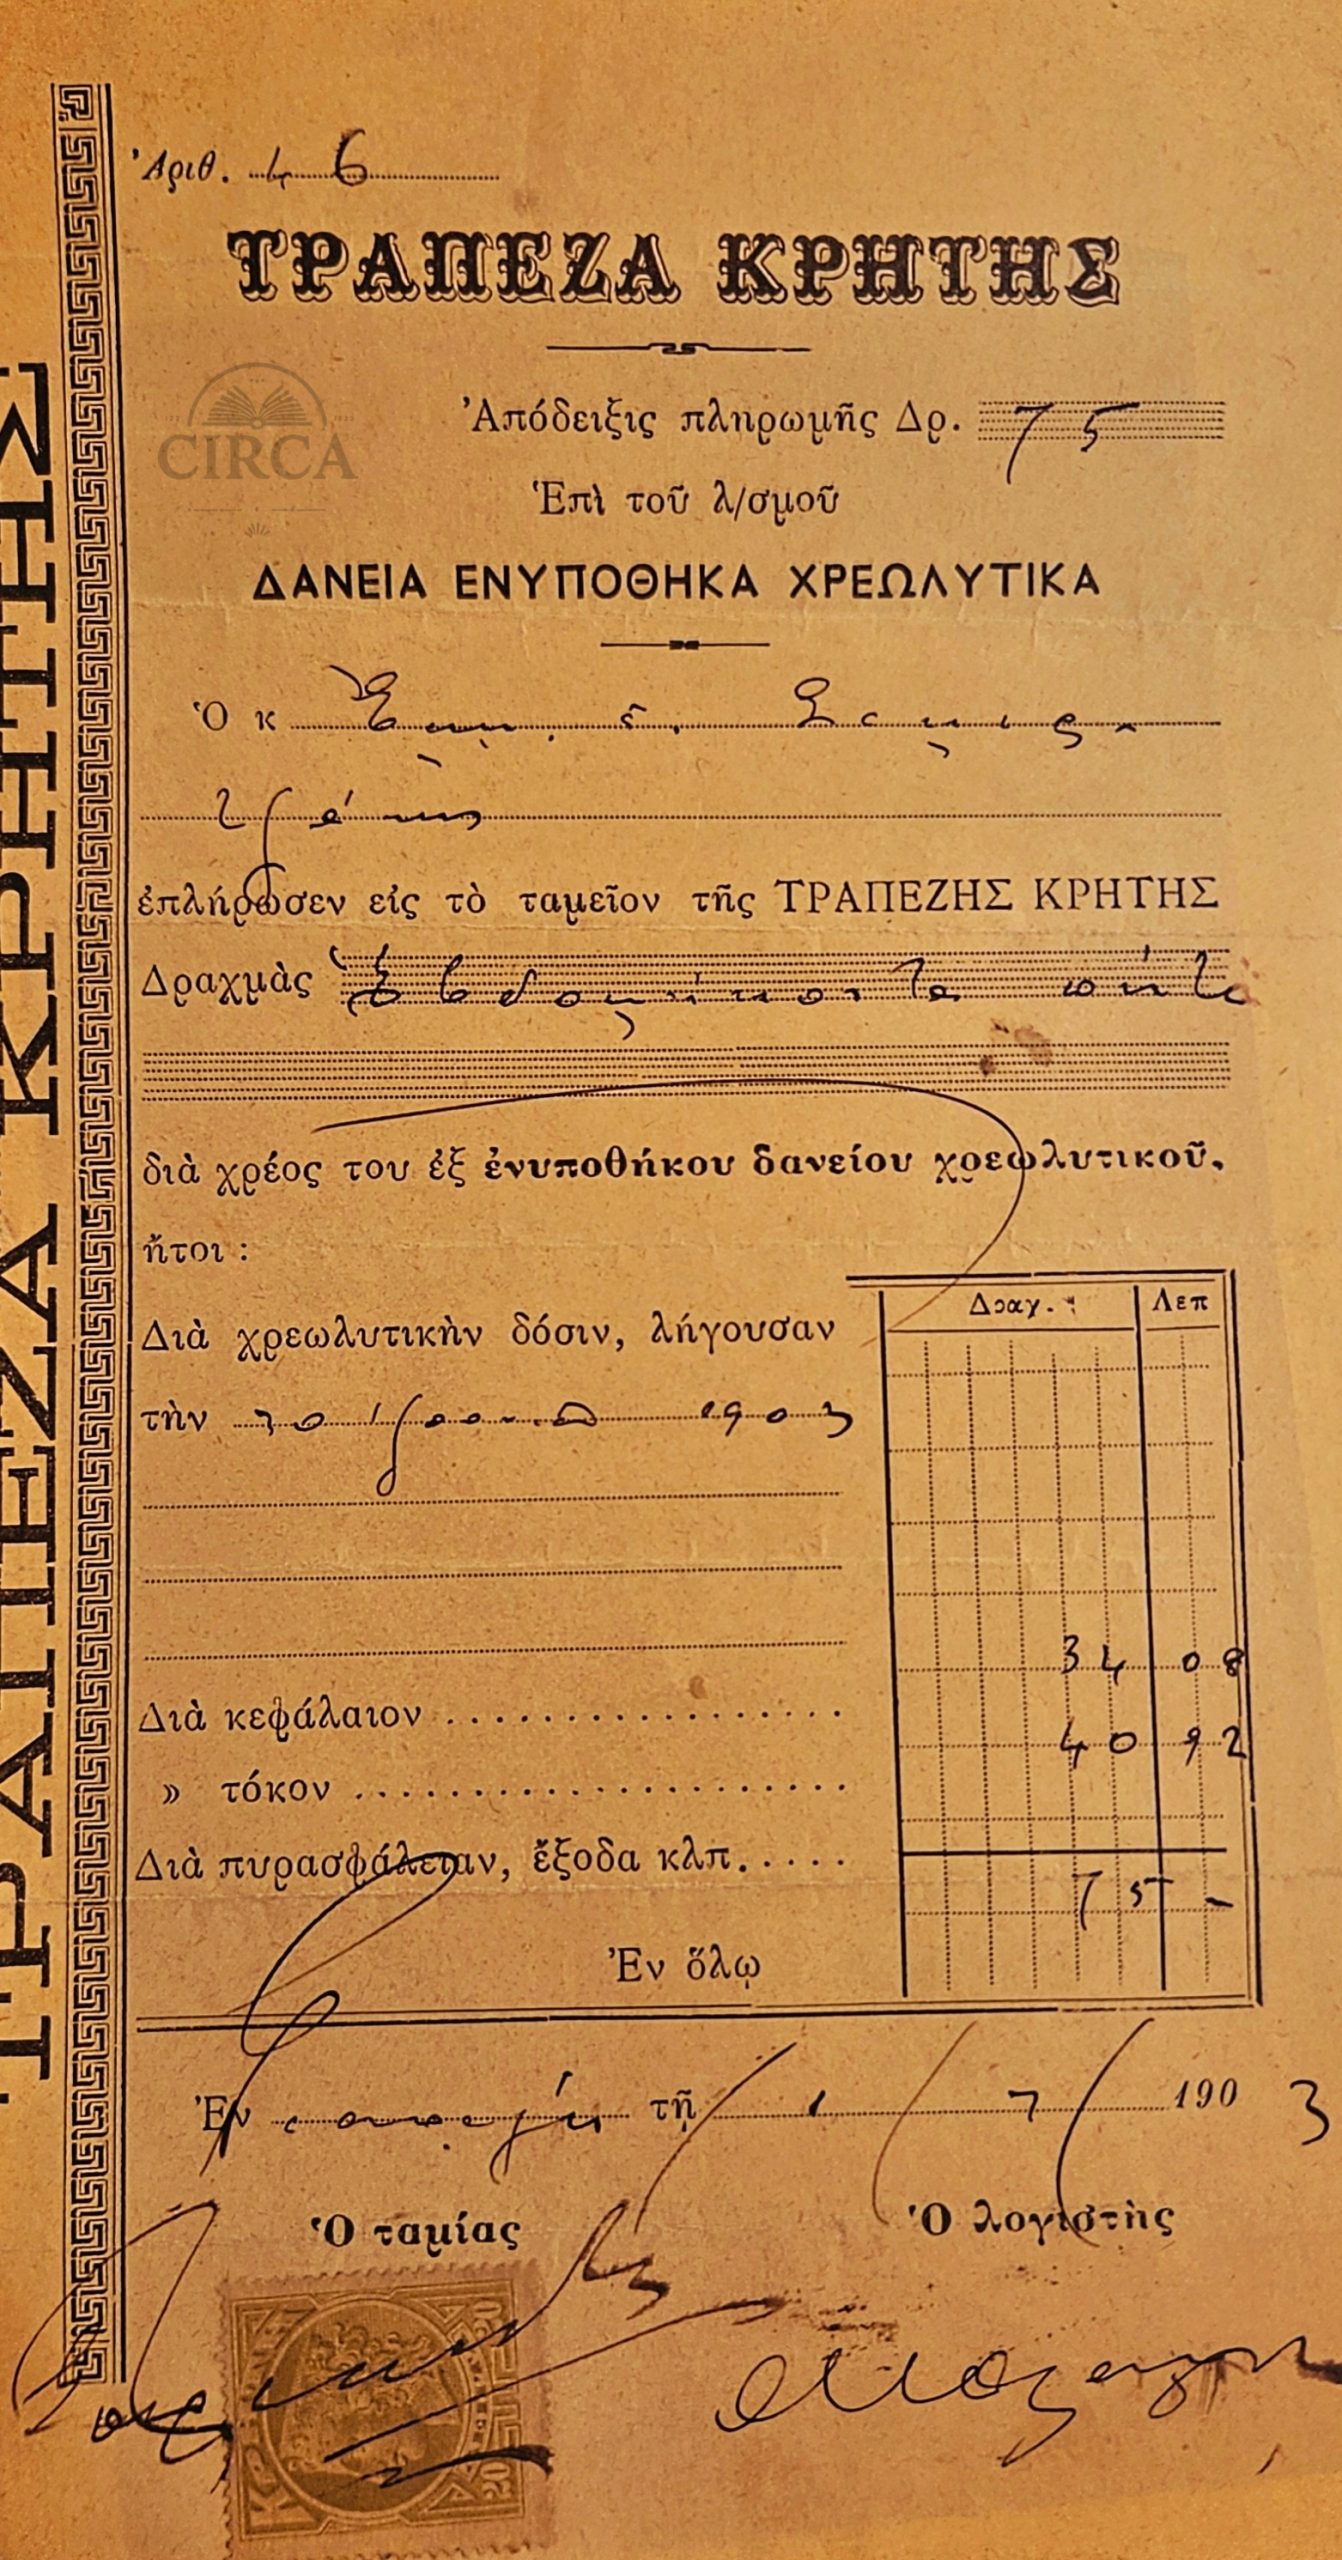 Ἀριθ. 46
ΤΡΑΠΕΖΑ ΚΡΗΤΗΣ
CIRCA
Ἀπόδειξις πληρωμῆς Δρ. 75
Ἐπὶ τοῦ λ/σμοῦ
ΔΑΝΕΙΑ ΕΝΥΠΟΘΗΚΑ ΧΡΕΩΛΥΤΙΚΑ
Ὁ κ
ἐπλήρωσεν εἰς τὸ ταμεῖον τῆς ΤΡΑΠΕΖΗΣ ΚΡΗΤΗΣ
Δραχμὰς Ἑβδομήκοντα πέντε
διὰ χρέος του ἐξ ἐνυποθήκου δανείου χρεωλυτικοῦ,
ἤτοι :
Δραχ. Λεπ
Διὰ χρεωλυτικὴν δόσιν, λήγουσαν
τὴν 30 1903
34 08
Διὰ κεφάλαιον
40 92
» τόκον
Διὰ πυρασφάλειαν, ἔξοδα κλπ.
75 -
Ἐν ὅλῳ
Ἐν τῇ 1/7/ 1903
Ὁ ταμίας Ὁ λογιστὴς
ΤΡΑΠΕΖΑ ΚΡΗΤΗΣ